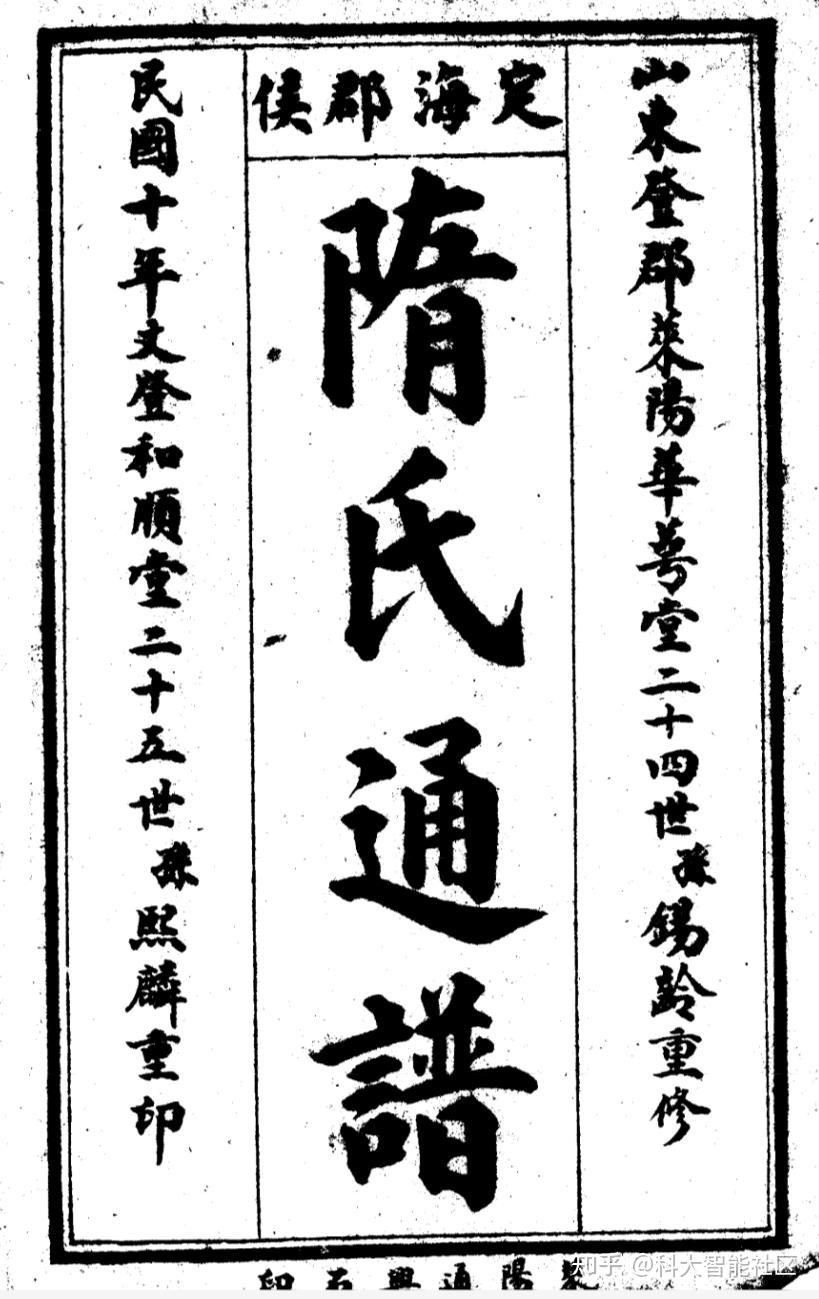 定海郡侯
山東登郡萊陽華萼堂二十四世孫錫齡重修
隋氏通譜
民國十年文登和順堂二十五世孫熙麟重印
陽通興石印
知乎 @科大智能社区